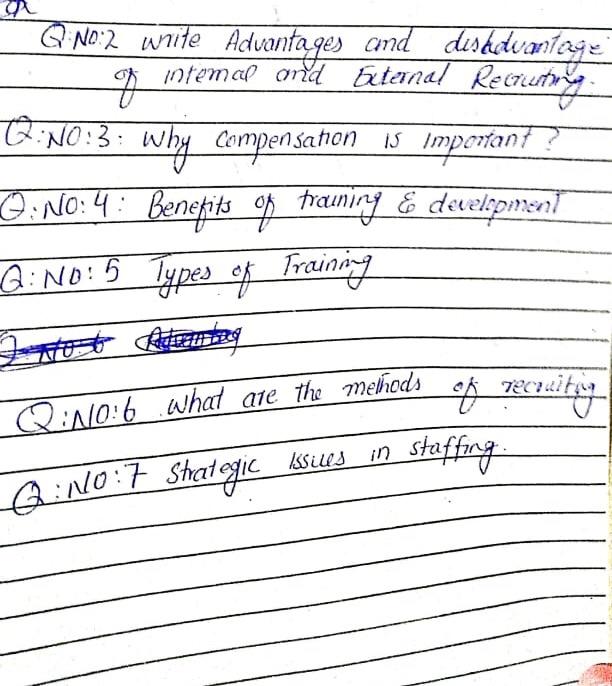 Q:NO:2 write Advantages and disadvantage
of internal and External Recruiting.
Q:NO:3: Why Compensation is important?
Q:NO:4: Benefits of training & development
Q:NO:5 Types of Training
Q:NO:6 what are the methods of recruiting
Q:NO:7 Strategic Issues in staffing.